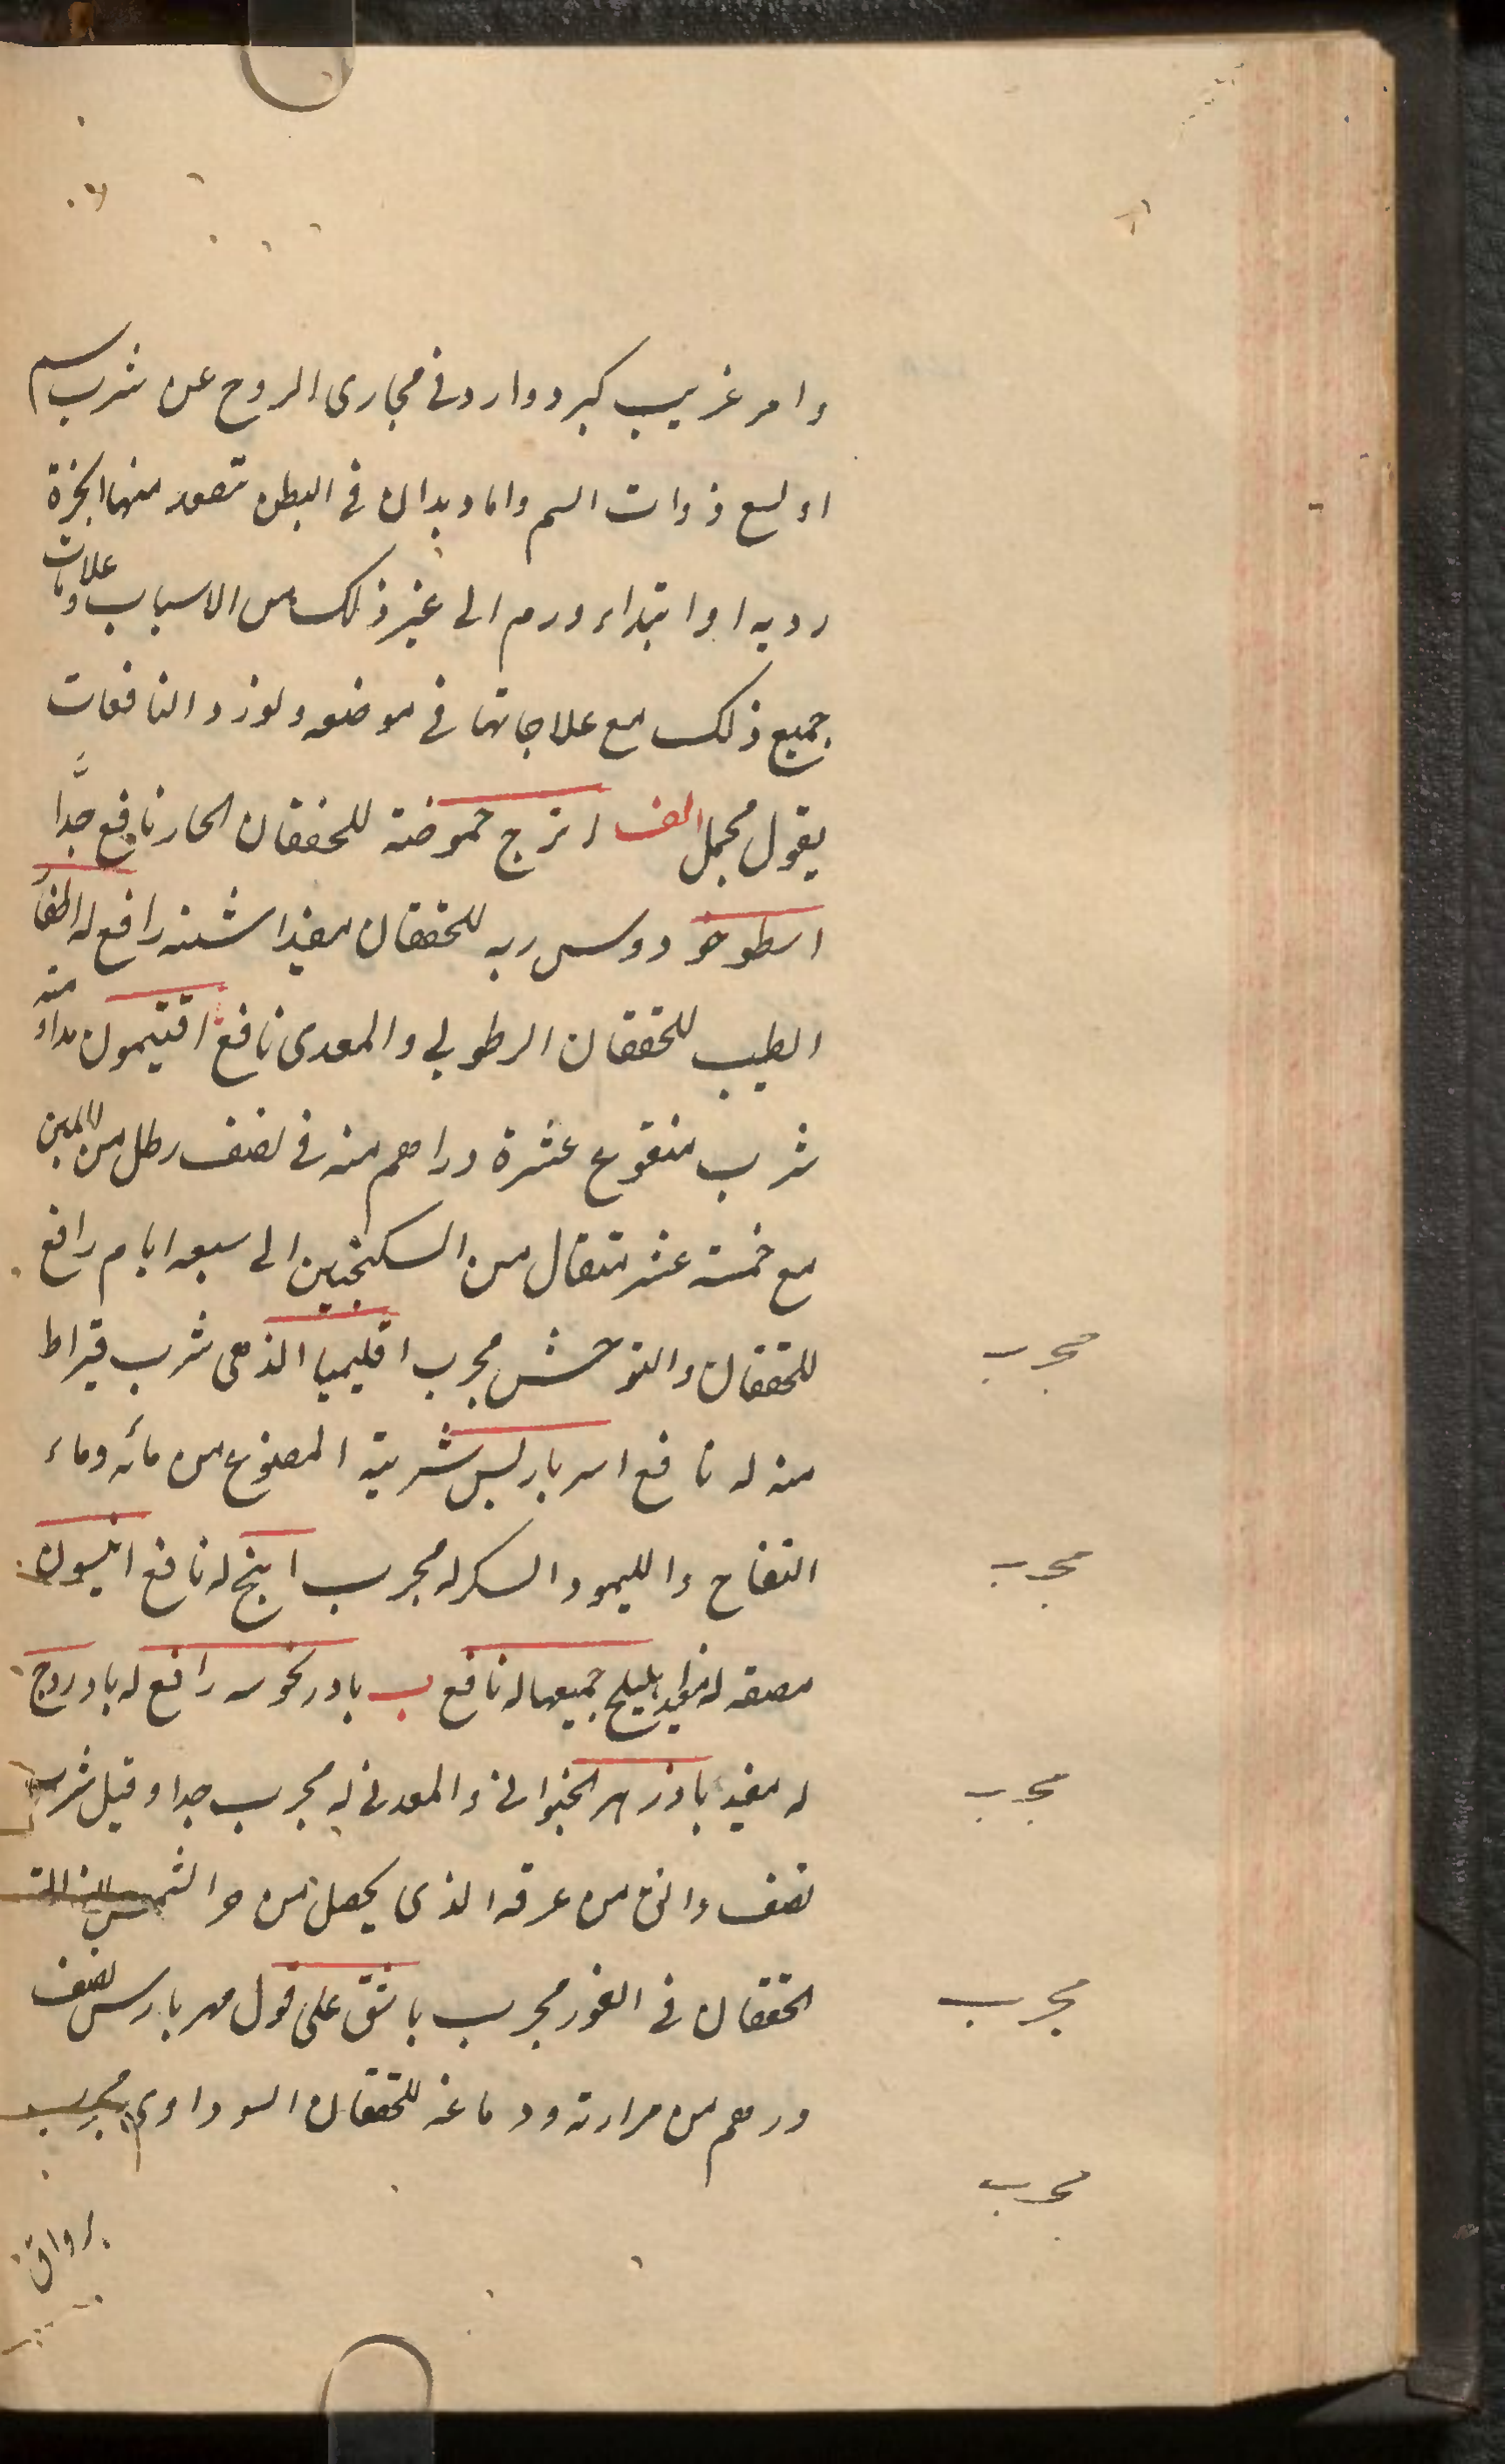 وامر غريب كبرد وارد في مجارى الروح عن شرب سم
او لسع ذوات السم واما ديدان في البطن تصعد منها ابخرة
رديه او ابتداء ورم الى غير ذلك من الاسباب وعلامات
جميع ذلك مع علاجاتها في موضعه ولنورد النافعات
بقول مجمل الف اترج حموضته للخفقان الحار نافع جدًّا
اسطوخودوس ربه للخفقان مفيد اشنه رافع له اظفار
الطيب للخفقان الرطوبي والمعدى نافع افتيمون مداومة
شرب منقوع عشرة دراهم منه في نصف رطل من اللبن
مع خمسة عشر مثقال من السكنجبين الى سبعه ايام رافع
للخفقان والتوحش مجرب اقليميا الذهبى شرب قيراط
منه له نافع امبرباريس شربة المصنوع من مائه وماء
التفاح والليمو والسكر له مجرب ايرج له نافع انيسون
مصقه له مفيد اهليلج جميعها له نافع ب بادرنجويه رافع له بادروج
له مفيد بادزهر الحيواني والمعدني له مجرب جدا وقيل شرب
نصف دانق من عرقه الذى يحصل من حر الشمس
الخفقان في الفور مجرب باشق على قول مهربارس نصف
درهم من مرارته ودماغه للخفقان السوداوى مجرب
برواق
مجرب
مجرب
مجرب
مجرب
مجرب